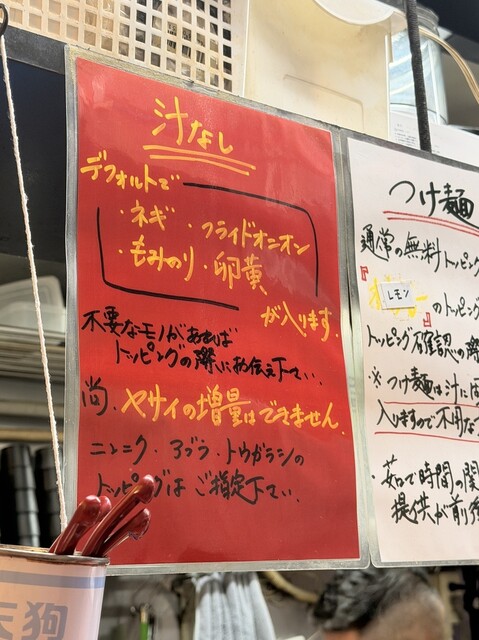 汁なし
デフォルトで
・ネギ ・フライドオニオン
・もみのり ・卵黄
が入ります.
不要なモノがあれば
トッピングの際にお伝え下さい.
尚.ヤサイの増量はできません.
ニンニク・アブラ・トウガラシの
トッピングは ご指定下さい.
つけ麺
通常の無料トッピング
『
レモン
のトッピ
』
トッピング確認の際
※つけ麺は汁に
入りますので不用な
・茹で時間の関
提供が前後
天狗